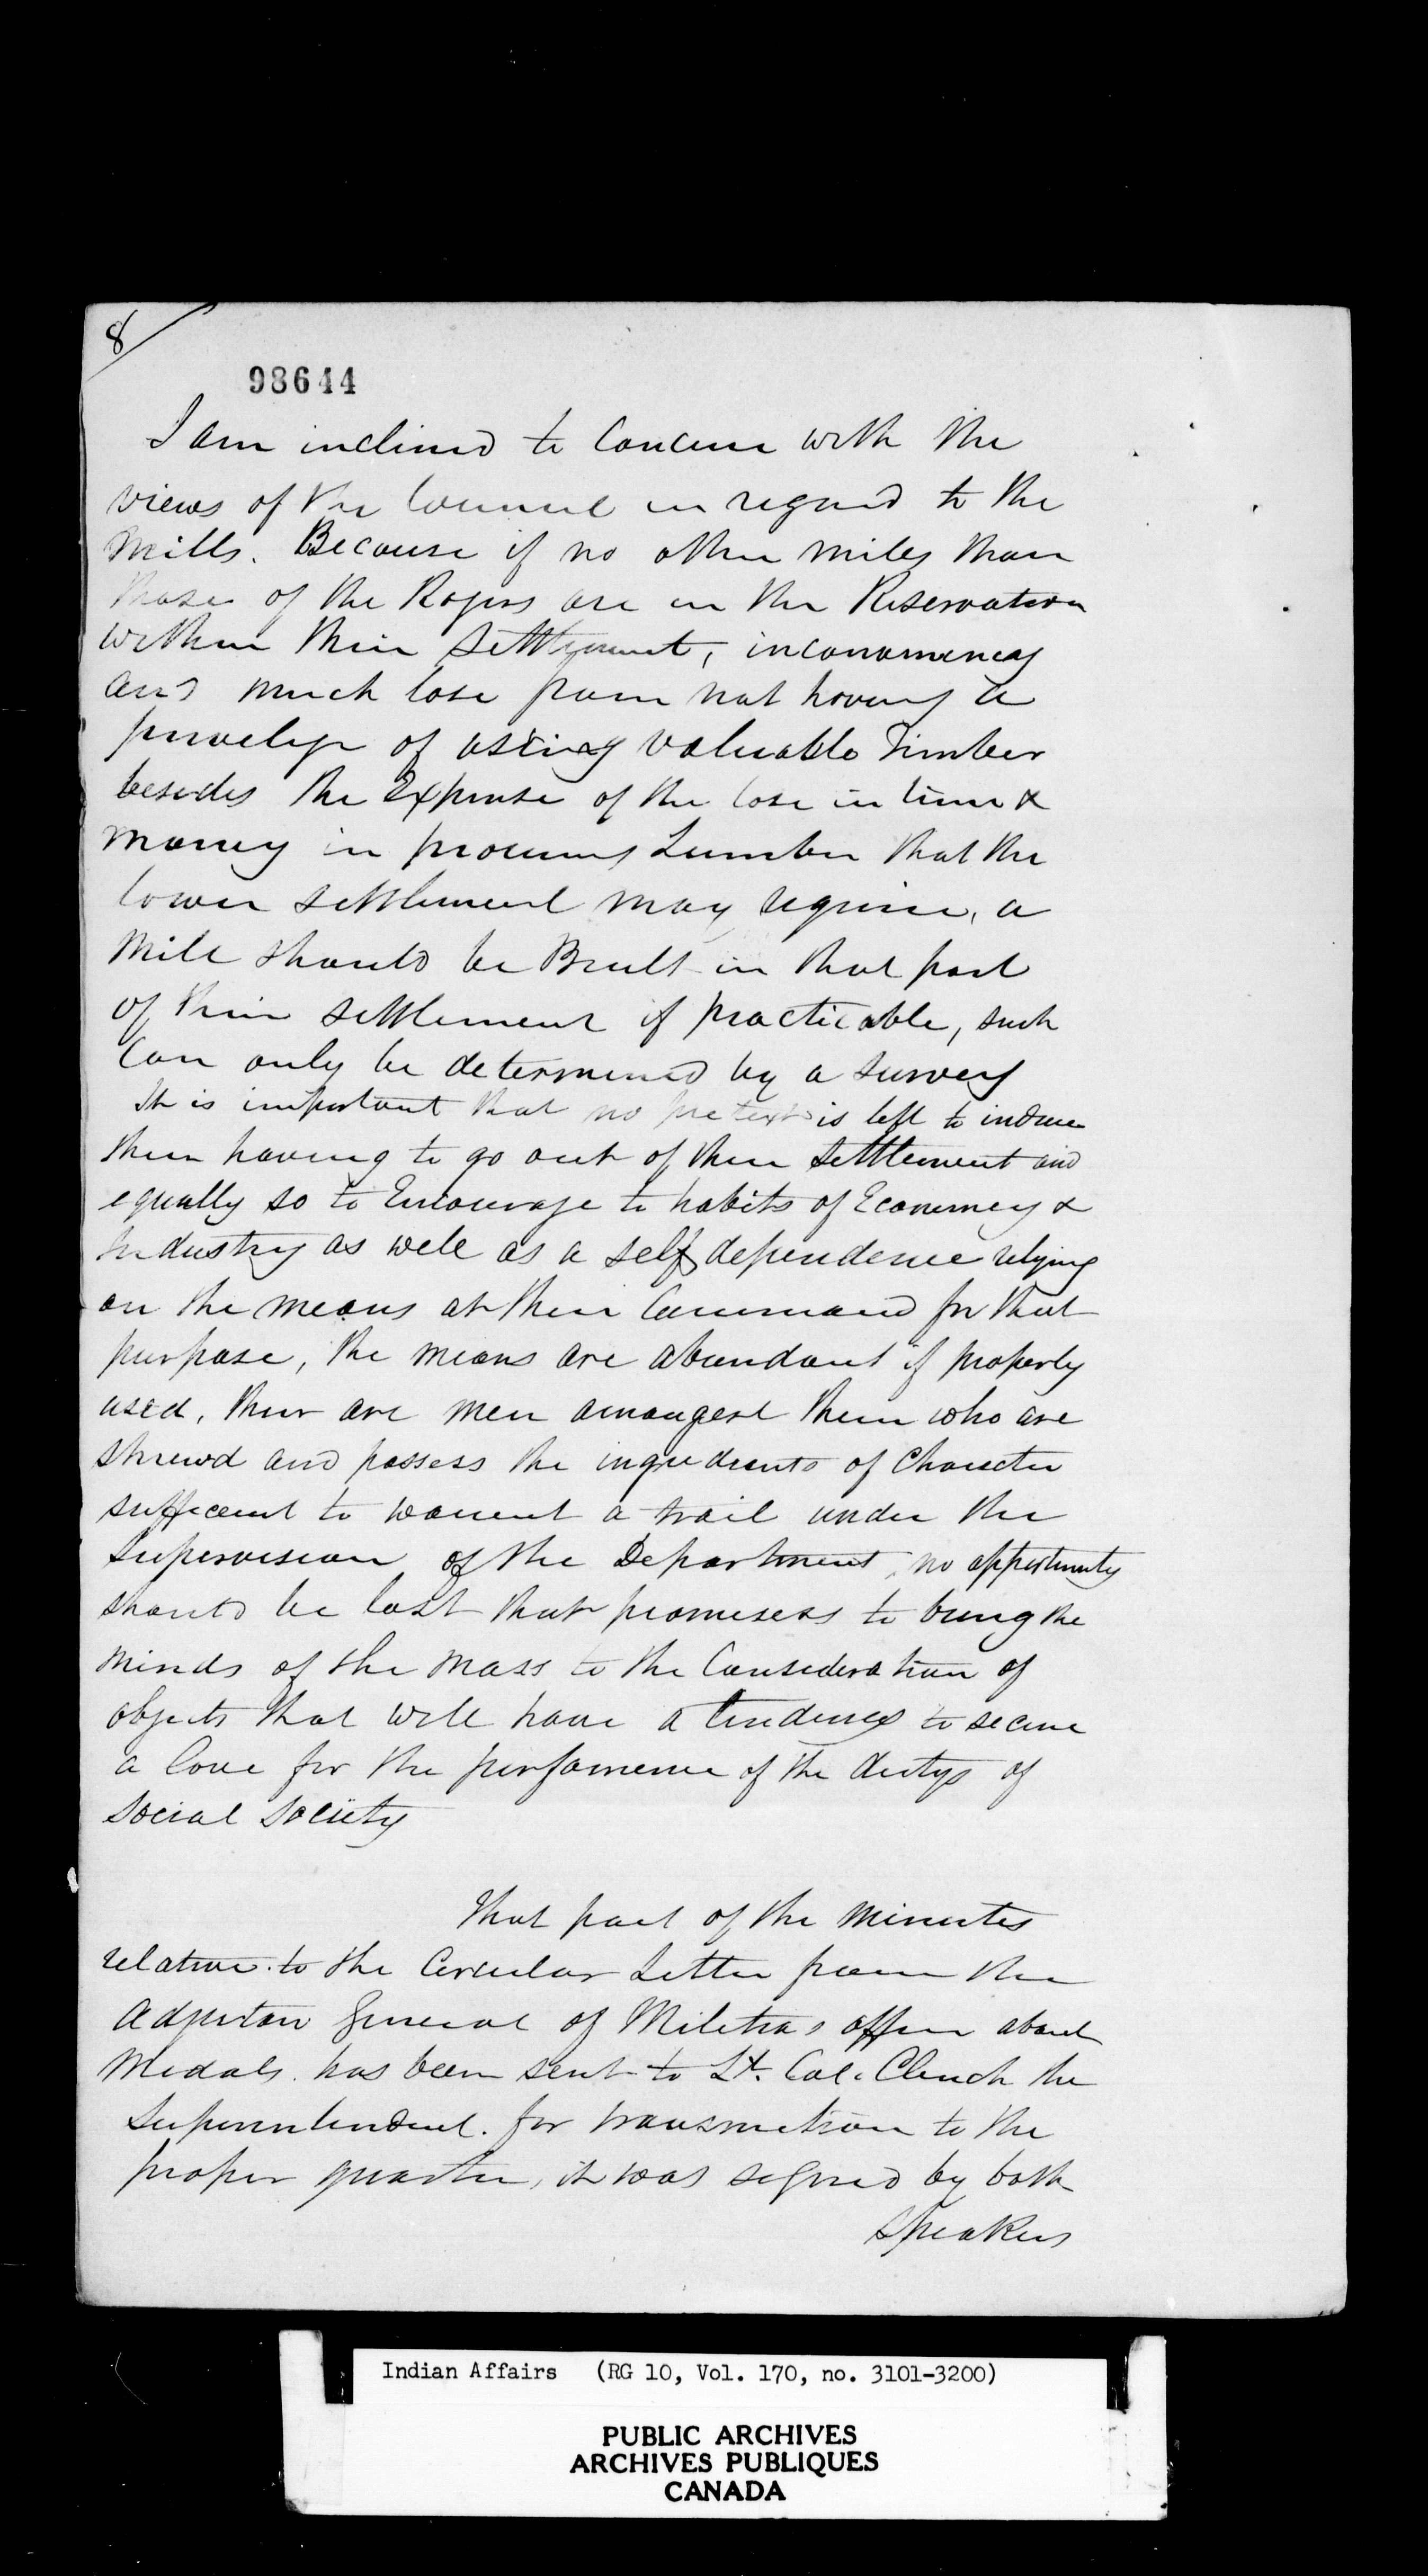 8
98644
I am inclined to Concur with the
views of the Council in regard to the
Mills. Because if no other mills than
those of the Rogers are in the Reservation
within their Settlement,
and much lose from not having a
of using valuable Timber
besides the Expense of the lose in time &
money in procuring Lumber that the
lower settlement may require, a
Mill should be Built in that part
of their settlement if practicable, such
Can only be determined by a survey
It is important that no pretext is left to induce
them having to go out of their Settlement and
equally so to Encourage to habits of Economey &
Industry as well as a self dependence relying
on the means at their Command for that
purpose, the means are abundant if properly
used, their are men amongest them who are
shrewd and possess the ingredients of Character
sufficient to warrent a trail under the
Supervision of the Department, no opportunity
should be lost that promisess to bring the
minds of the mass to the Consideration of
objects that will have a tendency to secure
a love for the performence of the dutys of
social society
That part of the Minutes
relative to the Circular Letter from the
Adjutan General of Militas office about
Medals. has been sent to Lt. Col. Clench the
Superintendent. for transmition to the
proper quarter, it was signed by both
Speakers
Indian Affairs (RG 10, Vol. 170, no. 3101-3200)
PUBLIC ARCHIVES
ARCHIVES PUBLIQUES
CANADA